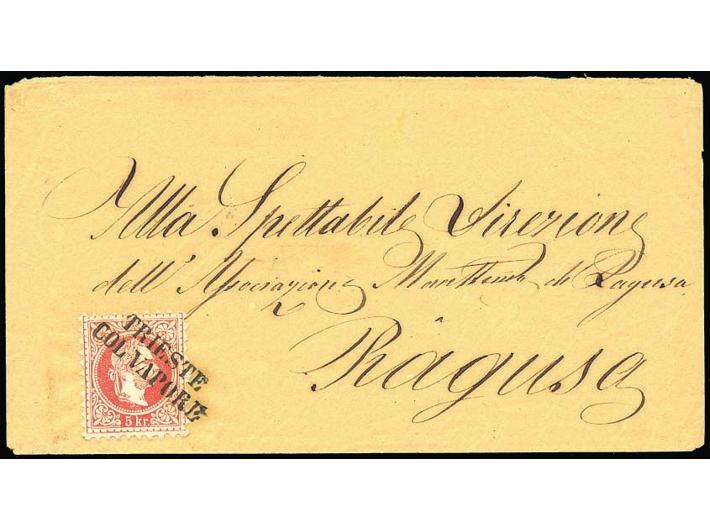 Alla Spettabile Direzione
dell' Associazione Marittima di Ragusa
Ràgusa
TRIESTE
COL VAPORE
5 kr.